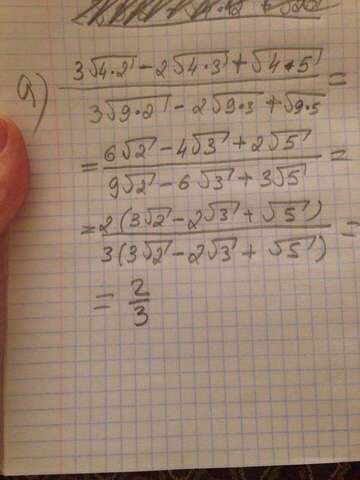 а) (3√4·2 - 2√4·3 + √4·5) / (3√9·2 - 2√9·3 + √9·5) =
= (6√2 - 4√3 + 2√5) / (9√2 - 6√3 + 3√5) =
= 2(3√2 - 2√3 + √5) / 3(3√2 - 2√3 + √5) =
= 2/3